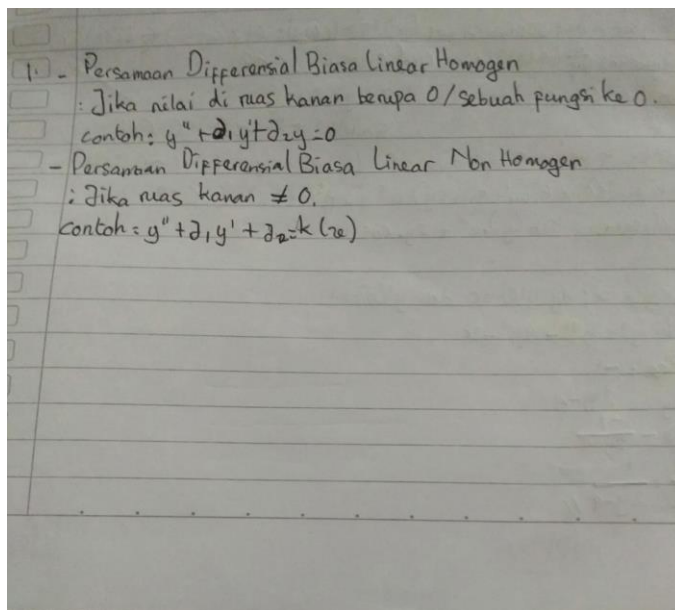 1. - Persamaan Differensial Biasa Linear Homogen
: Jika nilai di ruas kanan berupa 0/sebuah fungsi ke 0.
contoh: y" + a₁y' + a₂y = 0
- Persamaan Differensial Biasa Linear Non Homogen
: Jika ruas kanan ≠ 0.
contoh: y" + a₁y' + a₂ = k(x)